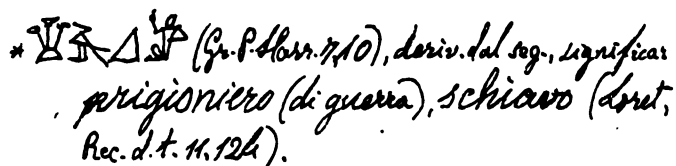 * (Gr. P. Harr. 7,10), deriv. dal seg., significar
prigioniero (di guerra), schiavo (Loret,
Rec. d. t. 11, 124).